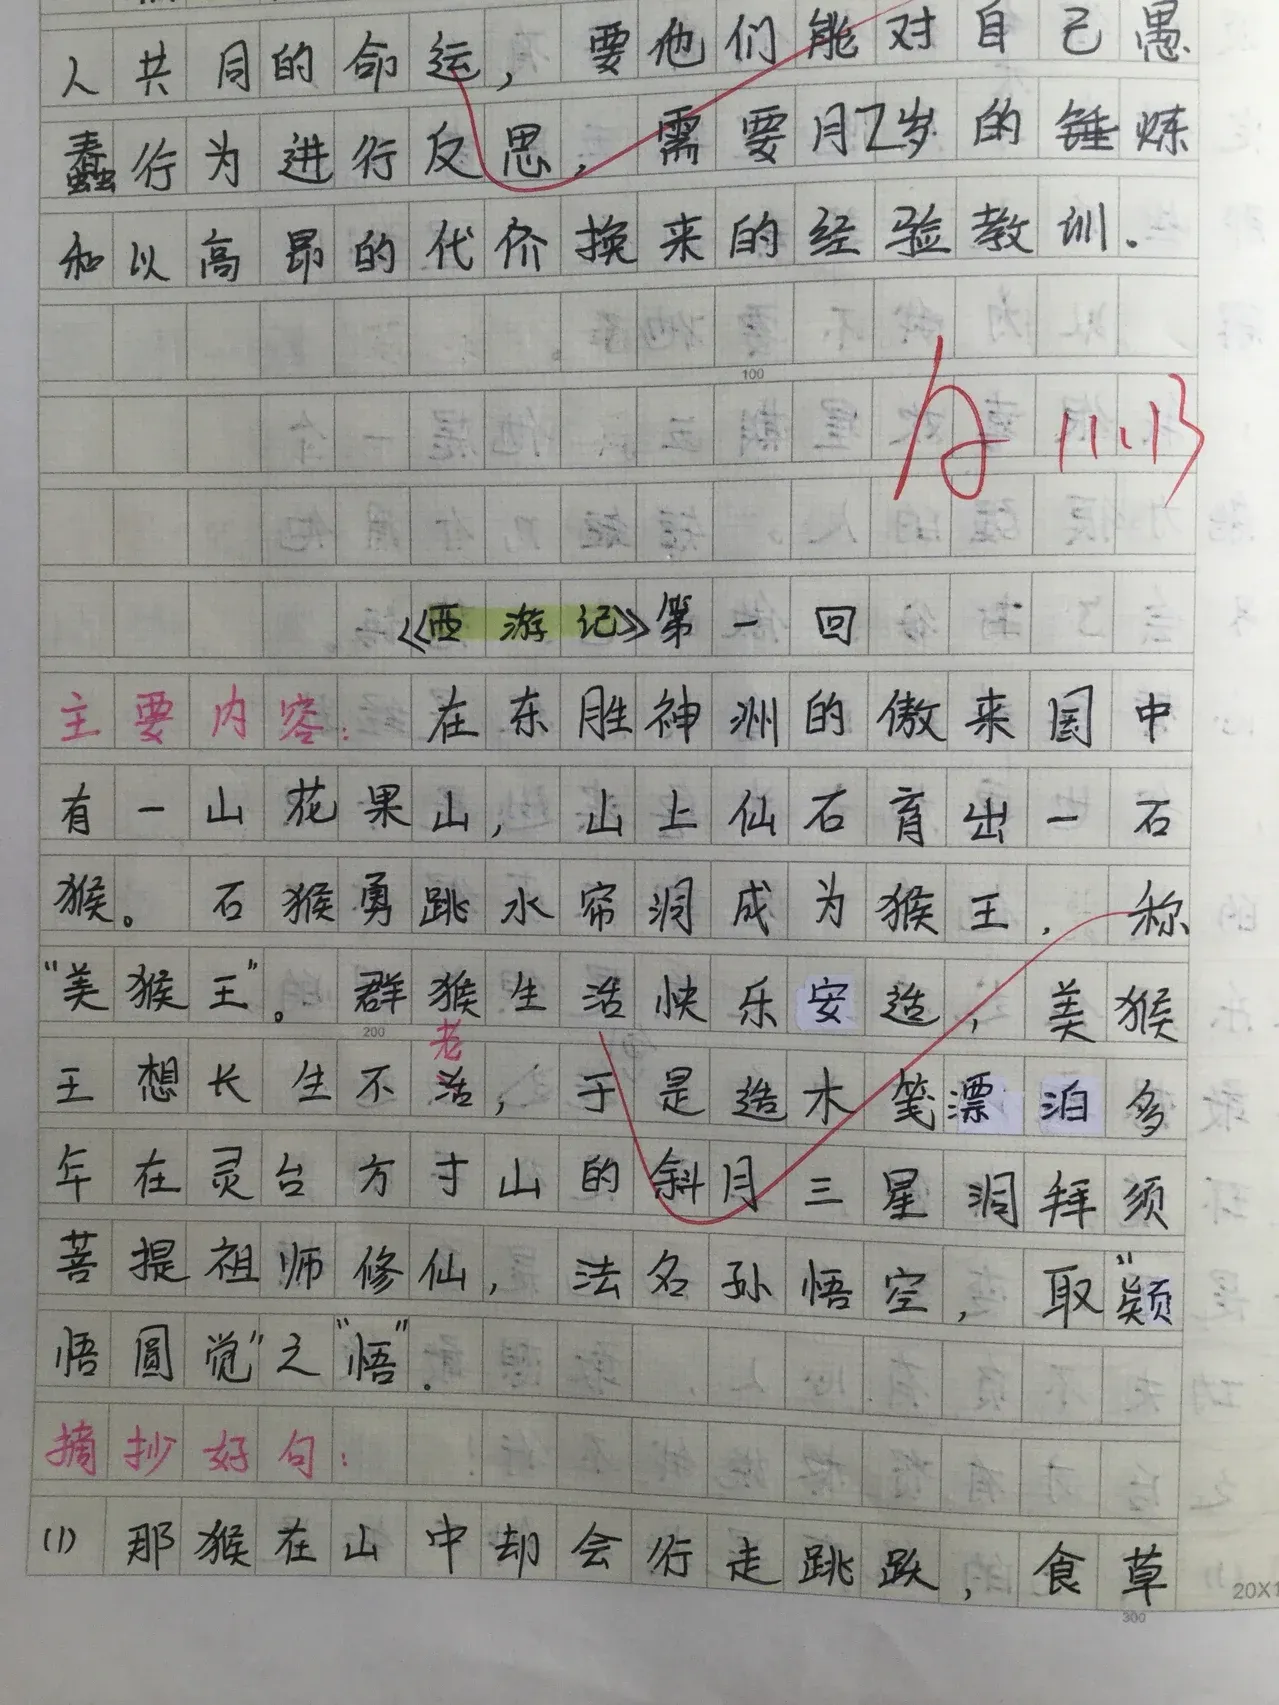 人共同的命运，要他们能对自己愚
蠢行为进行反思，需要月岁的锤炼
和以高昂的代价换来的经验教训.
100
A 11.13
《西游记》第一回
主要内容：在东胜神洲的傲来国中
有一山花果山，山上仙石育出一石
猴。石猴勇跳水帘洞成为猴王.称
“美猴王”。群猴生活快乐安逸，美猴
200
老
王想长生不活，于是造木笺漂泊多
年在灵台方寸山的斜月三星洞拜须
菩提祖师修仙，法名孙悟空，取“颖
悟圆觉”之“悟”.
摘抄好句：
(1)那猴在山中却会行走跳跃，食草
20X1
300